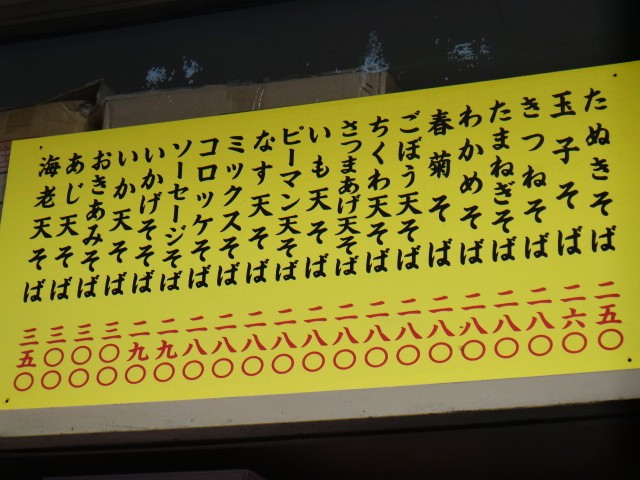 たぬきそば 二五〇
玉子そば 二六〇
きつねそば 二八〇
たまねぎそば 二八〇
わかめそば 二八〇
春菊そば 二八〇
ごぼう天そば 二八〇
ちくわ天そば 二八〇
さつまあげ天そば 二八〇
いも天そば 二八〇
ピーマン天そば 二八〇
なす天そば 二八〇
ミックスそば 二八〇
コロッケそば 二八〇
ソーセージそば 二八〇
いかげそそば 二九〇
いか天そば 二九〇
おきあみそば 三〇〇
あじ天そば 三〇〇
海老天そば 三五〇